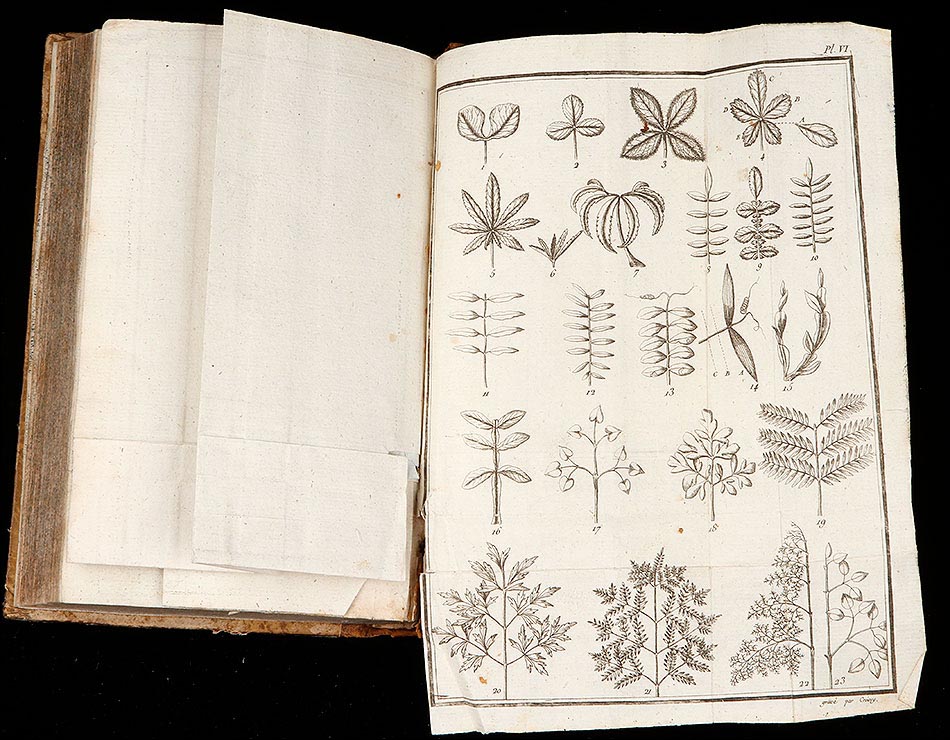 Pl. VI.
1 2 3 4
A B C D E
5 6 7 8 9 10
11 12 13 14 15
C B A
16 17 18 19
20 21 22 23
gravé par Croisey.